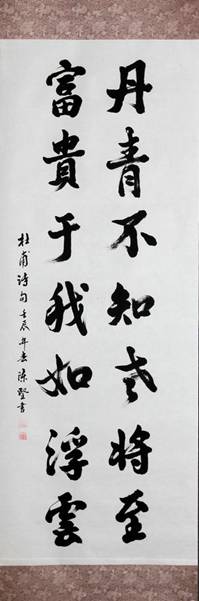 丹青不知老将至
富貴于我如浮雲
杜甫诗句壬辰年春陳堅書